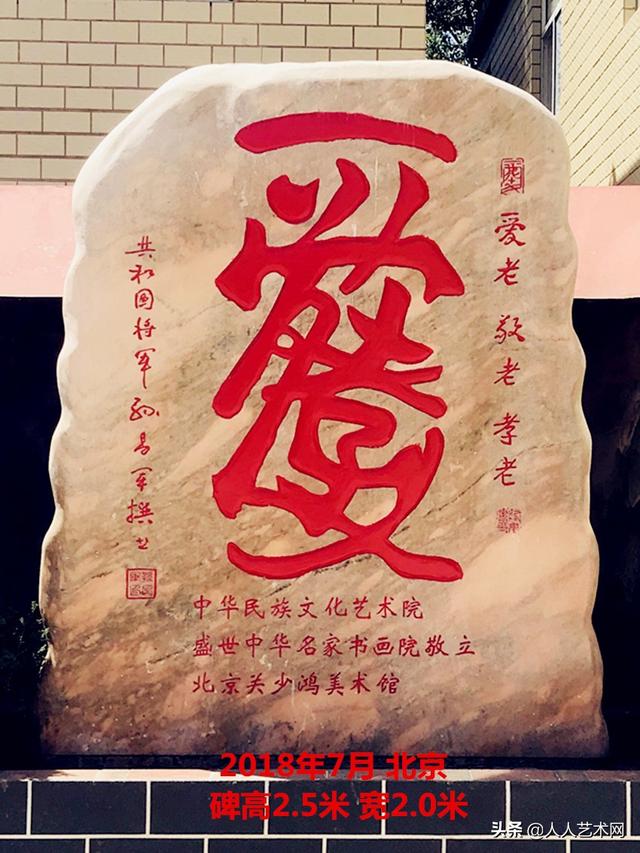 爱老 敬老 孝老
共和国将军 孙易军 撰书
中华民族文化艺术院
盛世中华名家书画院敬立
北京关少鸿美术馆
2018年7月 北京
碑高2.5米 宽2.0米
头条 @人人艺术网